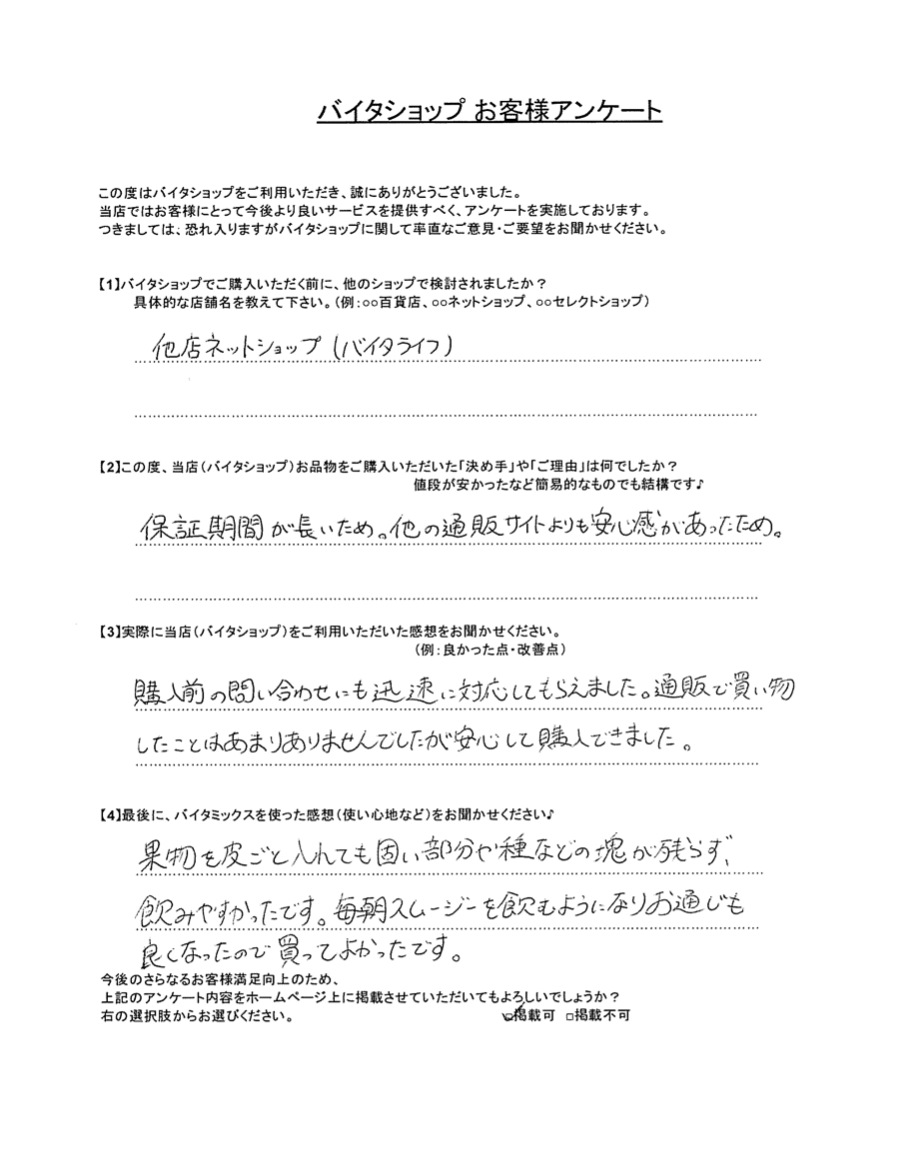 バイタショップ お客様アンケート
この度はバイタショップをご利用いただき、誠にありがとうございました。
当店ではお客様にとって今後より良いサービスを提供すべく、アンケートを実施しております。
つきましては、恐れ入りますがバイタショップに関して率直なご意見・ご要望をお聞かせください。
【1】バイタショップでご購入いただく前に、他のショップで検討されましたか？
具体的な店舗名を教えて下さい。（例：○○百貨店、○○ネットショップ、○○セレクトショップ）
他店ネットショップ(バイタライフ)
【2】この度、当店（バイタショップ）お品物をご購入いただいた「決め手」や「ご理由」は何でしたか？
値段が安かったなど簡易的なものでも結構です♪
保証期間が長いため。他の通販サイトよりも安心感があったため。
【3】実際に当店（バイタショップ）をご利用いただいた感想をお聞かせください。
（例：良かった点・改善点）
購入前の問い合わせにも迅速に対応してもらえました。通販で買い物
したことはあまりありませんでしたが安心して購入できました。
【4】最後に、バイタミックスを使った感想（使い心地など）をお聞かせください♪
果物を皮ごと入れても固い部分や種などの塊が残らず、
飲みやすかったです。毎朝スムージーを飲むようになりお通じも
良くなったので買ってよかったです。
今後のさらなるお客様満足向上のため、
上記のアンケート内容をホームページ上に掲載させていただいてもよろしいでしょうか？
右の選択肢からお選びください。 ☑掲載可 □掲載不可